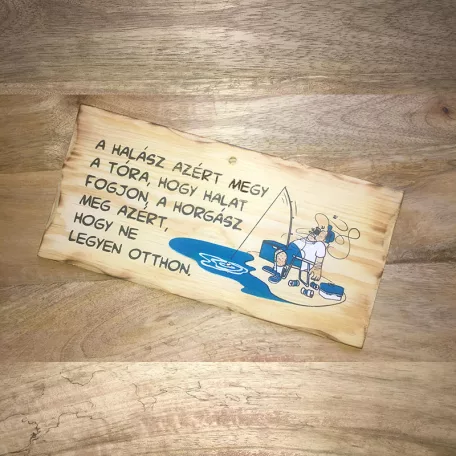 A HALÁSZ AZÉRT MEGY
A TÓRA, HOGY HALAT
FOGJON, A HORGÁSZ
MEG AZÉRT,
HOGY NE
LEGYEN OTTHON.